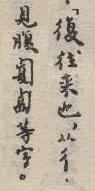 「復往来也，从彳。
見腹匍匐等字。